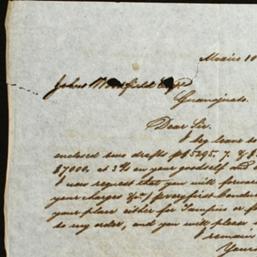 Mexico 10
John Esqr
Guanajuato.
Dear Sir.
I beg leave to
enclosed two drafts p$5295. 7. &
$7000, at 3% on your goodself and
I now request that you will forward
your charges
your place either for Tampico or
to my order, and you will please
I remain
Yours